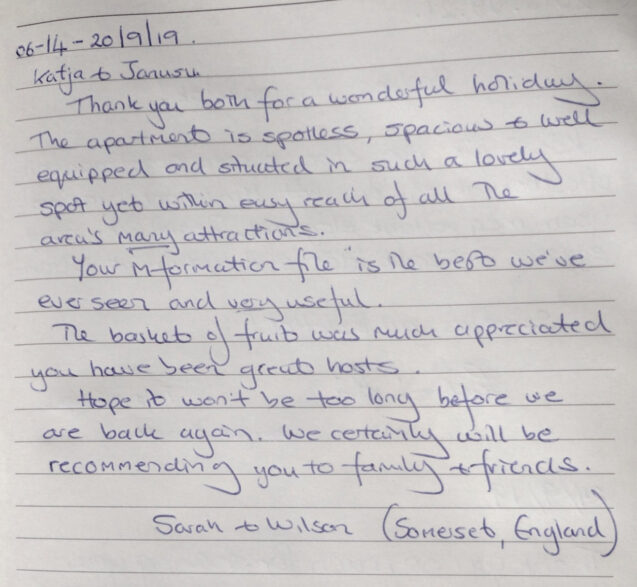 06-14-20/9/19.
Katja & Janusu
Thank you both for a wonderful holiday.
The apartment is spotless, spacious & well
equipped and situated in such a lovely
spot yet within easy reach of all the
area's many attractions.
Your information file is the best we've
ever seen and very useful.
The basket of fruit was much appreciated
you have been great hosts.
Hope it won't be too long before we
are back again. We certainly will be
recommending you to family & friends.
Sarah & Wilson (Somerset, England)